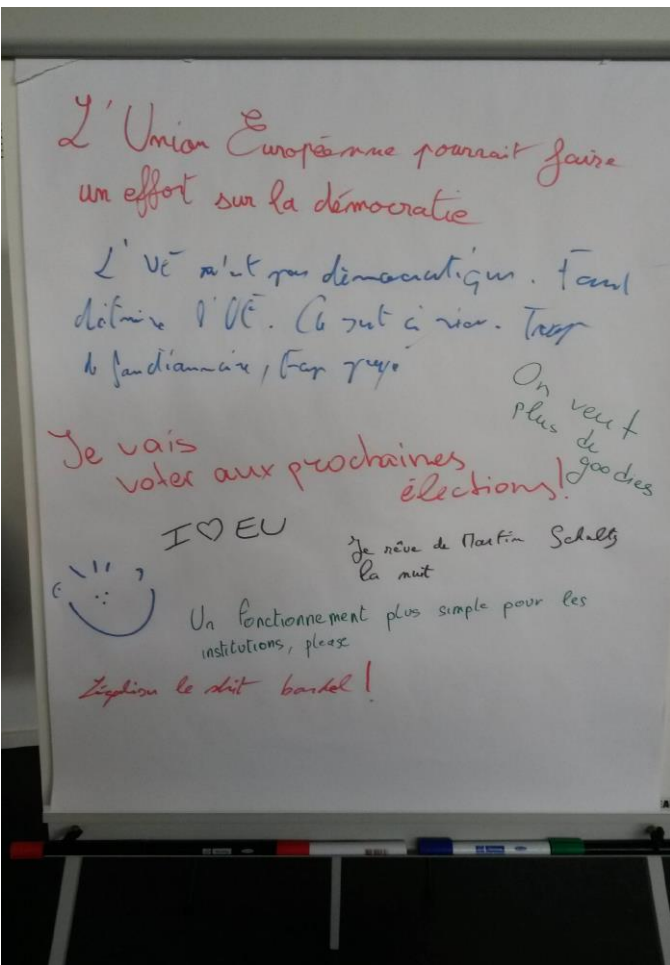 L'Union Européenne pourrait faire
un effort sur la démocratie
L'UE n'est pas démocratique. Faut
détruire l'UE. Ca sert à rien. Trop
de fonctionnaire, trop payé
On veut
plus de
goodies
Je vais
voter aux prochaines
élections!
I ♡ EU
Je rêve de Martin Schultz
la nuit
Un fonctionnement plus simple pour les
institutions, please
le bordel !